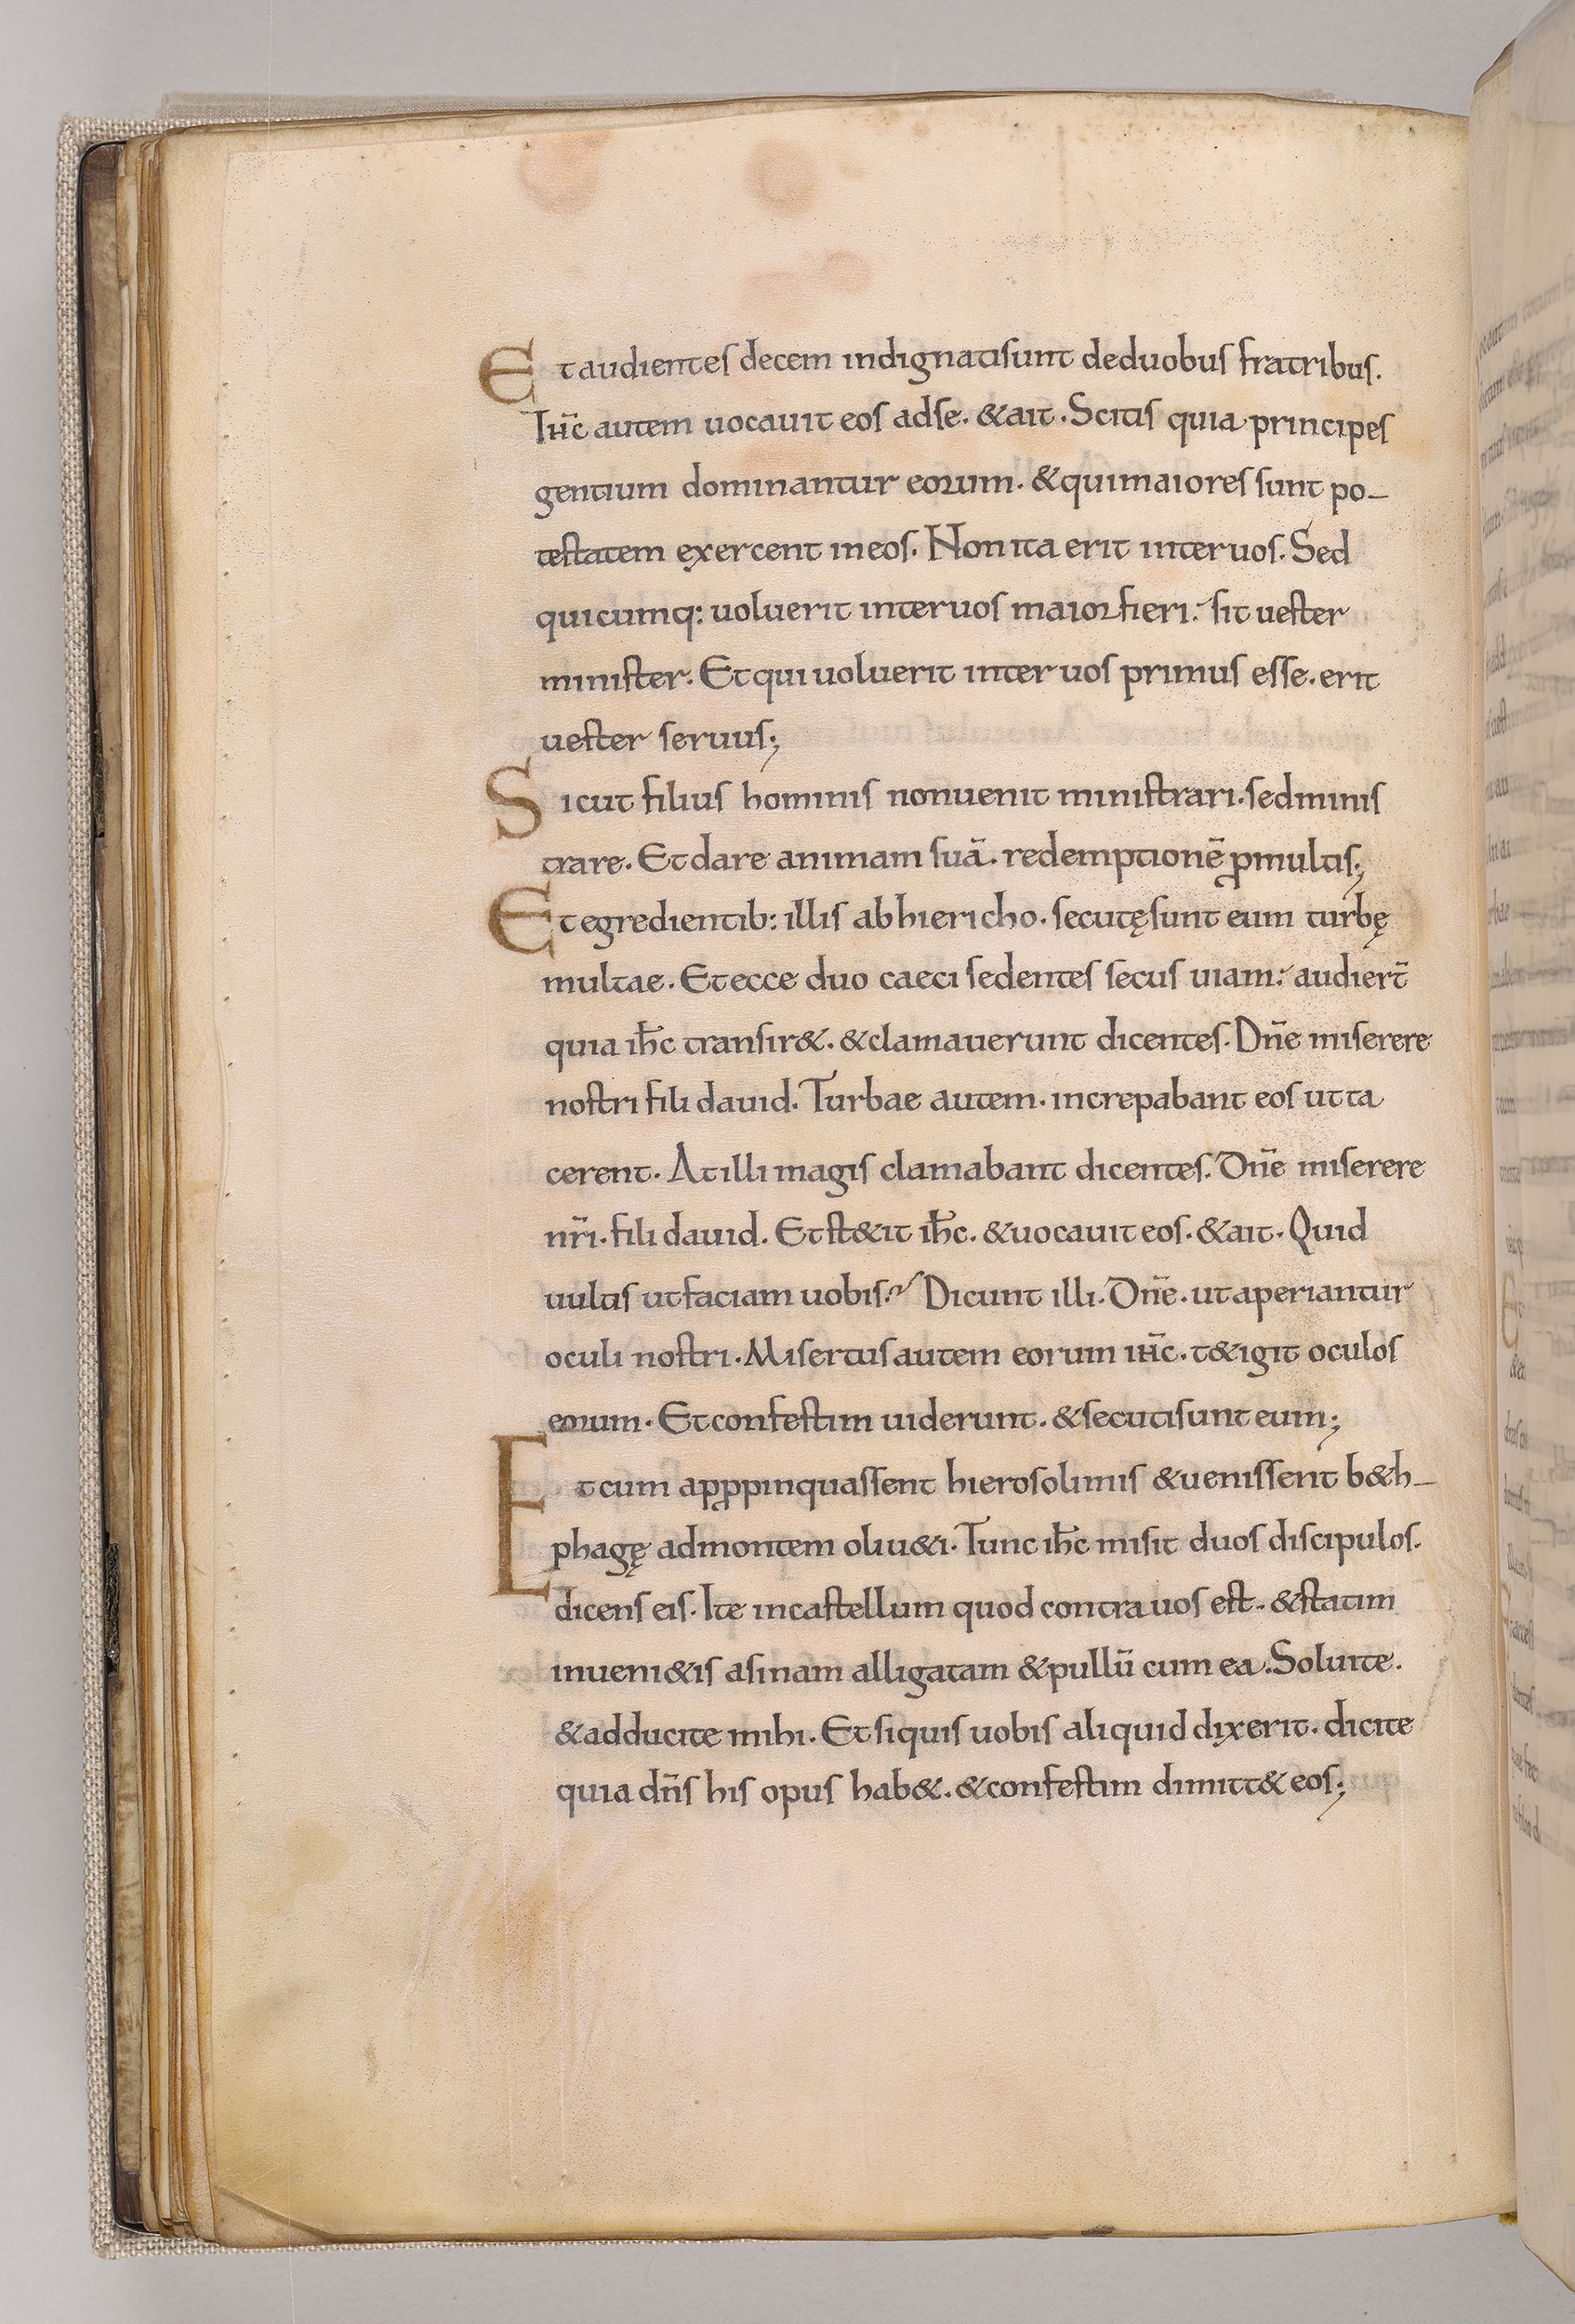 Et audientes decem indignati sunt de duobus fratribus.
Ih̄c autem uocauit eos ad se. & ait. Scitis quia principes
gentium dominantur eorum. & qui maiores sunt po-
testatem exercent in eos. Non ita erit inter uos. Sed
quicumq: uoluerit inter uos maior fieri. sit uester
minister. Et qui uoluerit inter uos primus esse. erit
uester seruus;
Sicut filius hominis non uenit ministrari. sed minis
trare. Et dare animam suā. redemptionē ꝓmultis;
Et egredientib: illis ab hiericho. secutę sunt eum turbę
multae. Et ecce duo caeci sedentes secus uiam. audiert̄
quia ih̄c transir&. & clamauerunt dicentes. Dn̄e miserere
nostri fili dauid. Turbae autem. increpabant eos ut ta
cerent. At illi magis clamabant dicentes. Dn̄e miserere
nr̄i. fili dauid. Et st&it ih̄c. & uocauit eos. & ait. Quid
uultis ut faciam uobis? Dicunt illi. Dn̄e. ut aperiantur
oculi nostri. Misertus autem eorum ih̄c. t&igit oculos
eorum. Et confestim uiderunt. & secuti sunt eum;
Et cum apꝓpinquassent hierosolimis & uenissent b&h-
phagę ad montem oliu&i. Tunc ih̄c misit duos discipulos.
dicens eis. Ite in castellum quod contra uos est. & statim
inueni&is asinam alligatam & pullū cum ea. Soluite.
& adducite mihi. Et siquis uobis aliquid dixerit. dicite
quia dn̄s his opus hab&. & confestim dimitt& eos;